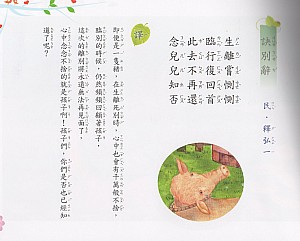 訣別辭
民．釋弘一
生離嘗惻惻
臨行復回首
此去不再還
念兒兒知否
釋
即使是一隻豬，在生離死別時，心中也會有千萬般不捨，
臨別的時候，仍然頻頻回顧著孩子，
這次的離別將永遠無法再見面了，
心中念念不捨的就是孩子啊！孩子們，你們是否也已經知
道了呢？